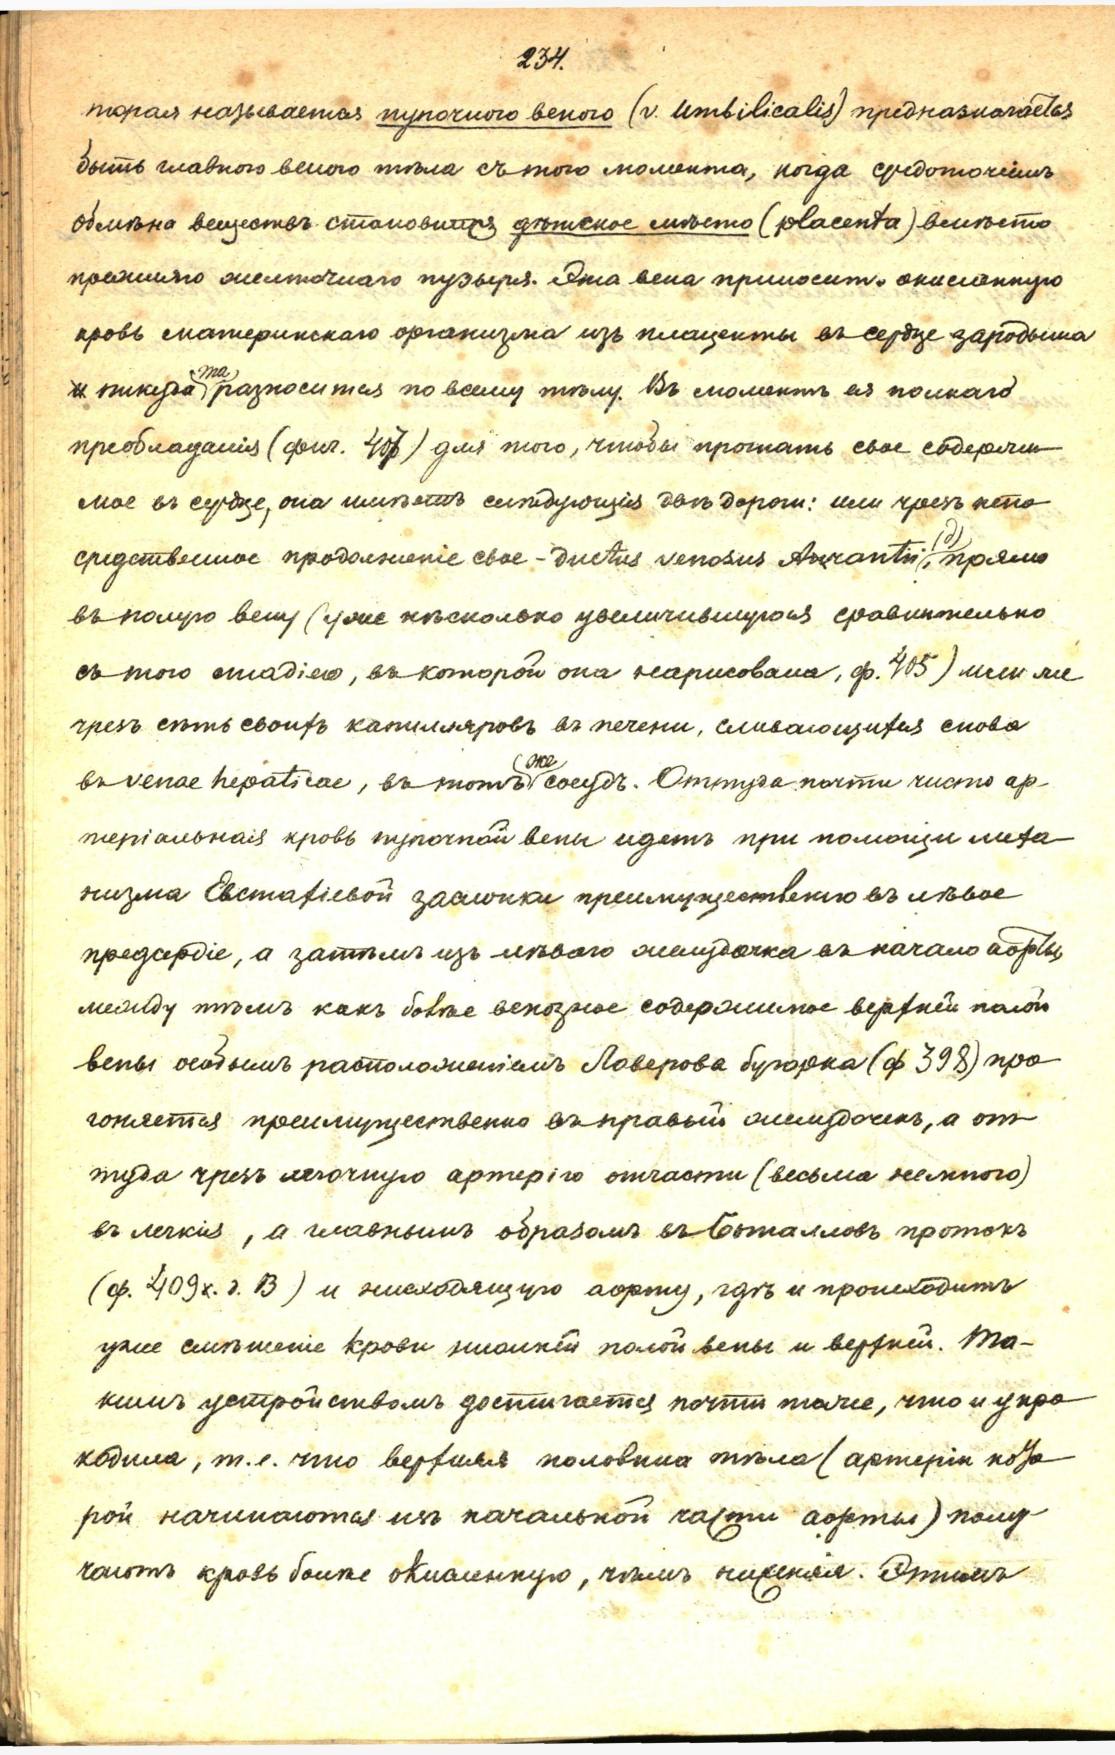 234.
торая называется пупочною веною (v. umbilicalis) предназначается
быть главною веною тѣла съ того момента, когда средоточіемъ
обмѣна веществъ становится дѣтское мѣсто (placenta) вмѣсто
прежняго желточнаго пузыря. Эта вена приноситъ окисленную
кровь материнскаго организма изъ плаценты въ сердце зародыша
и та разносится по всему тѣлу. Въ моментъ ея полнаго
преобладанія (фиг. 407) для того, чтобы прогнать свое содержи
мое въ сердце, она имѣетъ слѣдующія двѣ дороги: или чрезъ непо
средственное продолженіе свое - ductus venosus Aurantii (d), прямо
въ полую вену (уже нѣсколько увеличившуюся сравнительно
съ тою стадіею, въ которой она нарисована, ф. 405) или же
чрезъ сѣть своихъ капилляровъ въ печени, сливающихся снова
въ venae hepaticae, въ тотъ же сосудъ. Оттуда почти чисто ар-
теріальная кровь пупочной вены идетъ при помощи меха
низма Евстахіевой заслонки преимущественно въ лѣвое
предсердіе, а затѣмъ изъ лѣваго желудочка въ начало аорты,
между тѣмъ какъ болѣе венозное содержимое верхней полой
вены особымъ расположеніемъ Ловерова бугорка (ф 398) про
гоняется преимущественно въ правый желудочекъ, а от
туда чрезъ легочную артерію отчасти (весьма немного)
въ легкія, а главнымъ образомъ въ Боталловъ протокъ
(ф. 409 x. d. B) и нисходящую аорту, гдѣ и происходитъ
уже смѣшеніе крови нижней полой вены и верхней. Та-
кимъ устройствомъ достигается почти тоже, что и у кро
кодила, т. е. что верхняя половина тѣла (артеріи кото
рой начинаются изъ начальной части аорты) полу
чаютъ кровь болѣе окисленную, чѣмъ нижняя. Этимъ